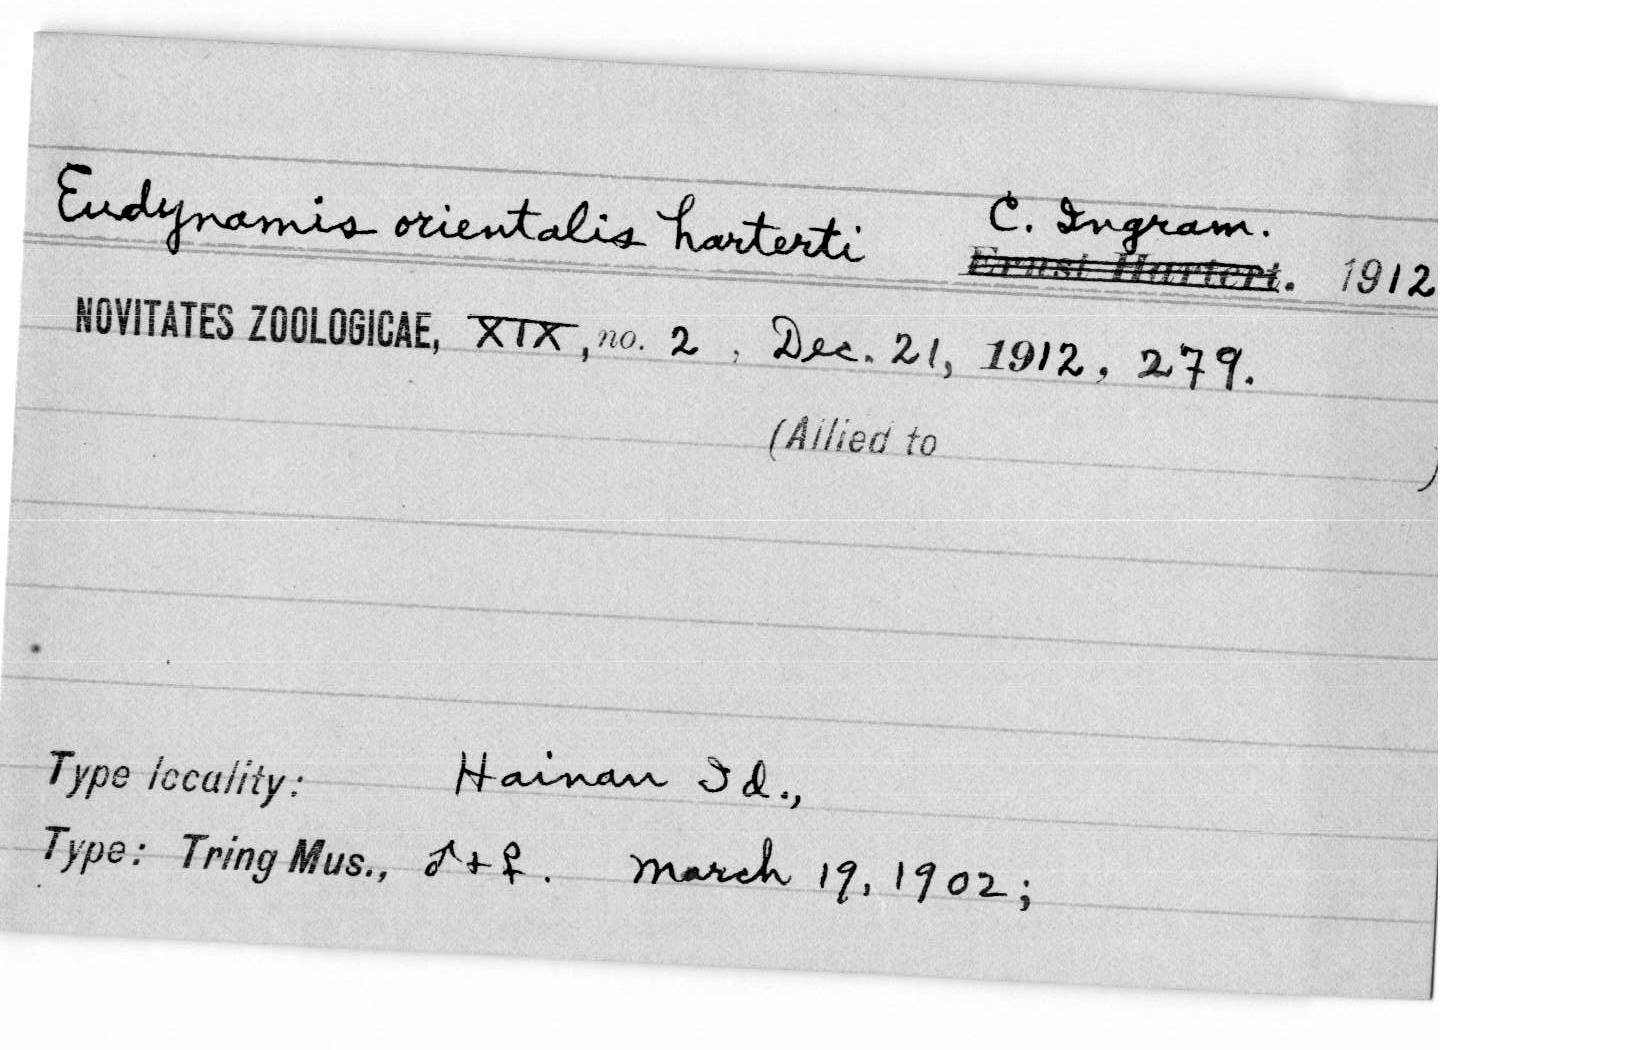 Eudynamis orientalis harterti C. Ingram.
Ernst Hartert. 1912
NOVITATES ZOOLOGICAE, XIX, no. 2, Dec. 21, 1912, 279.
(Allied to )
Type locality: Hainan Id.,
Type: Tring Mus., ♂+♀. March 19, 1902;